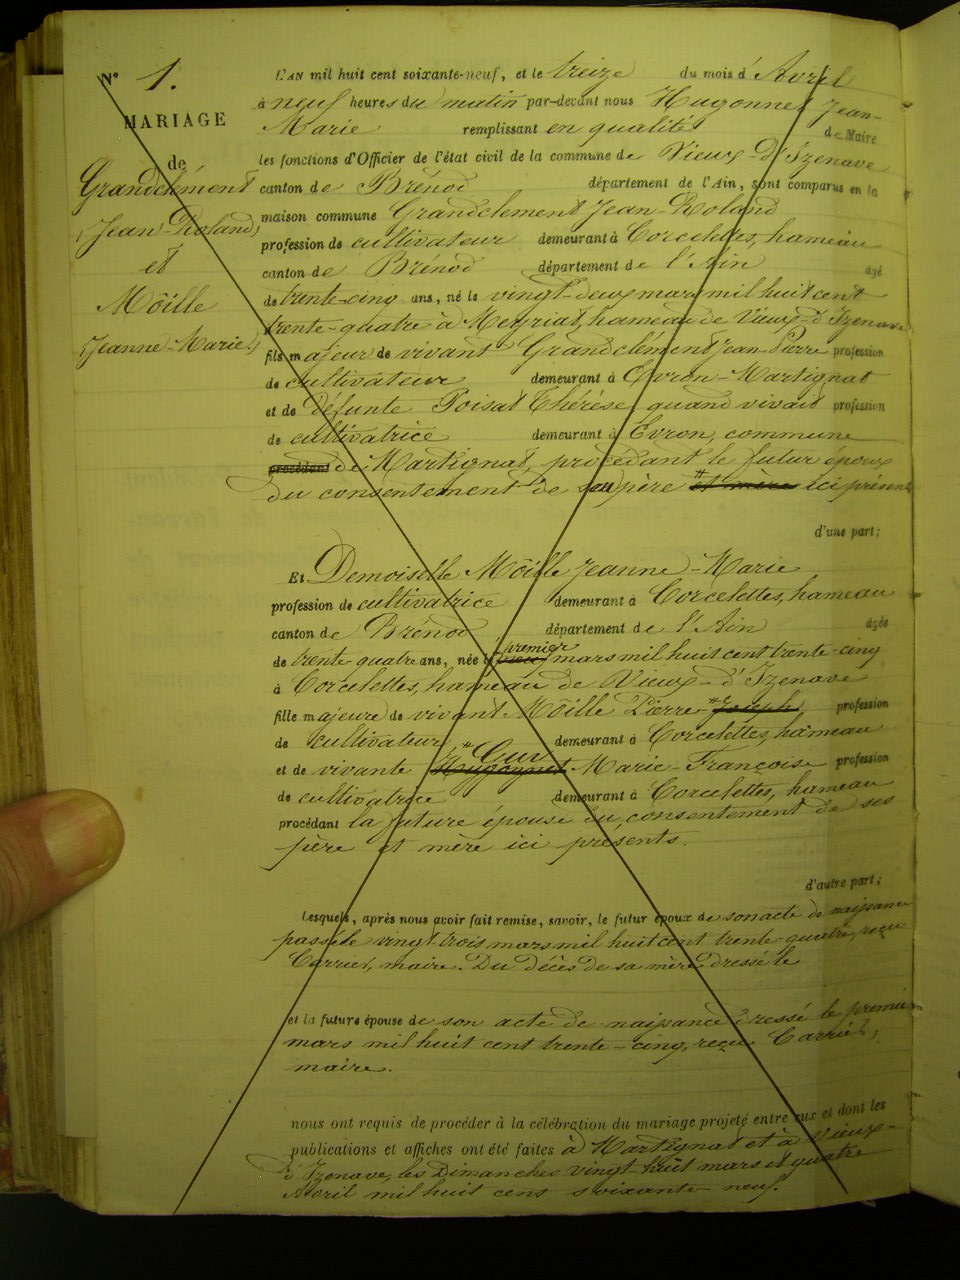 N° 1.
MARIAGE
de
Grandclément
(Jean-Roland)
et
Môille
(Jeanne-Marie)
L'AN mil huit cent soixante-neuf, et le treize du mois d'Avril
à neuf heures du matin par-devant nous Hugonnet Jean-
Marie remplissant en qualité de Maire
les fonctions d'Officier de l'état civil de la commune de Vieux-d'Izenave
canton de Brénod département de l'Ain, sont comparus en la
maison commune Grandclement Jean-Roland
profession de cultivateur demeurant à Corcelettes, hameau
canton de Brénod département de l'Ain âgé
de trente-cinq ans, né le vingt-deux mars mil huit cent
trente-quatre à Meyriat, hameau de Vieux-d'Izenave
fils majeur de vivant Grandclément Jean-Pierre profession
de cultivateur demeurant à Evron-Martignat
et de défunte Poisat Thérèse, quand vivait profession
de cultivatrice demeurant à Evron, commune
procédant de Martignat, procédant le futur epoux
du consentement de son père et mère ici présent
d'une part;
Et Demoiselle Môille Jeanne-Marie
profession de cultivatrice demeurant à Corcelettes, hameau
canton de Brénod département de l'Ain âgée
de trente-quatre ans, née le premier mars mil huit cent trente-cinq
à Corcelettes, hameau de Vieux-d'Izenave
fille majeure de vivant Môille Pierre-Joseph profession
de cultivateur, demeurant à Corcelettes, hameau
et de vivante Hugonnet Guy Marie-Françoise profession
de cultivatrice demeurant à Corcelettes, hameau
procédant la future épouse du consentement de ses
père et mère ici présents.
d'autre part;
Lesquels, après nous avoir fait remise, savoir, le futur époux de son acte de naissance
passé le vingt-trois mars mil huit cent trente-quatre, reçu
Carrier, maire. Du décès de sa mère dressé le
et la future épouse de son acte de naissance dressé le premier
mars mil huit cent trente-cinq, reçu Carrier,
maire.
nous ont requis de procéder à la célébration du mariage projeté entre eux et dont les
publications et affiches ont été faites à Martignat et à Vieux-
d'Izenave, les Dimanches vingt huit mars et quatre
Avril mil huit cent soixante neuf.